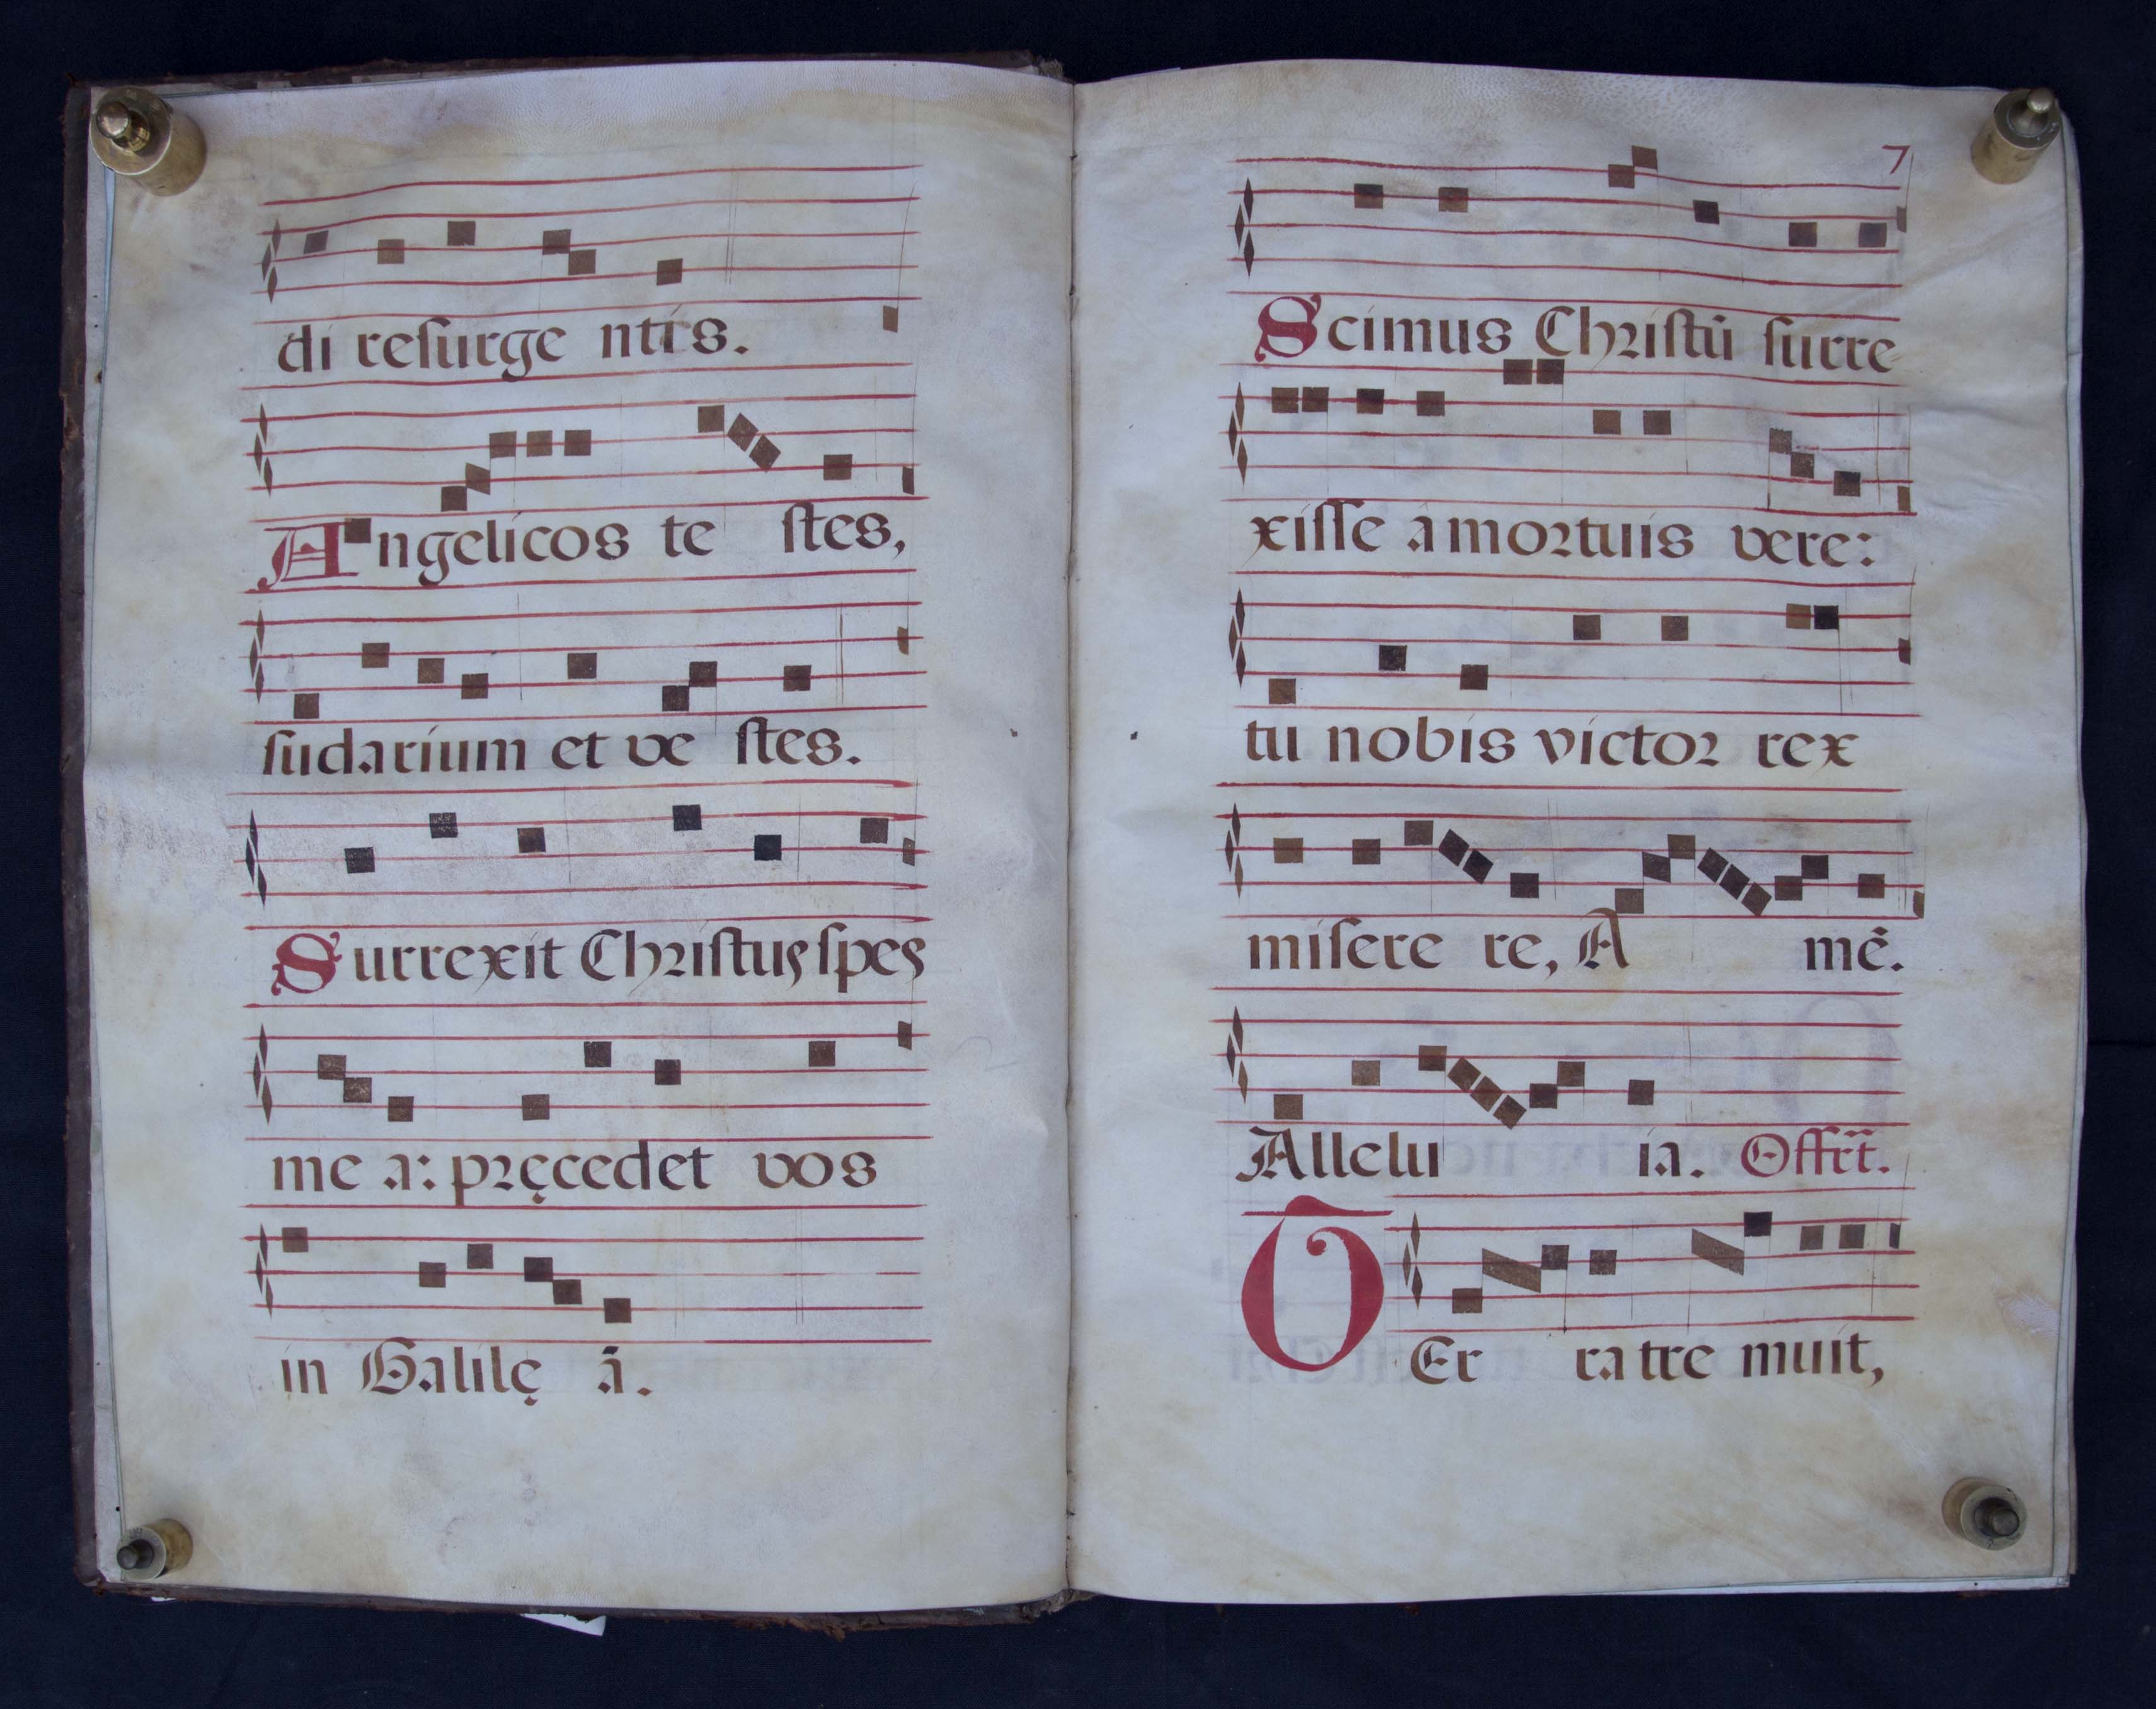 di reſurge ntis.
Angelicos te ſtes,
ſudarium et ve ſtes.
Surrexit Chriſtus ſpes
me a: pręcedet vos
in Galilę ā.
7
Scimus Chriſtū ſurre
xiſſe â mortuis vere:
tu nobis victor rex
miſere re, A mē.
Allelu ia. Offrt.
TEr ra tre muit,